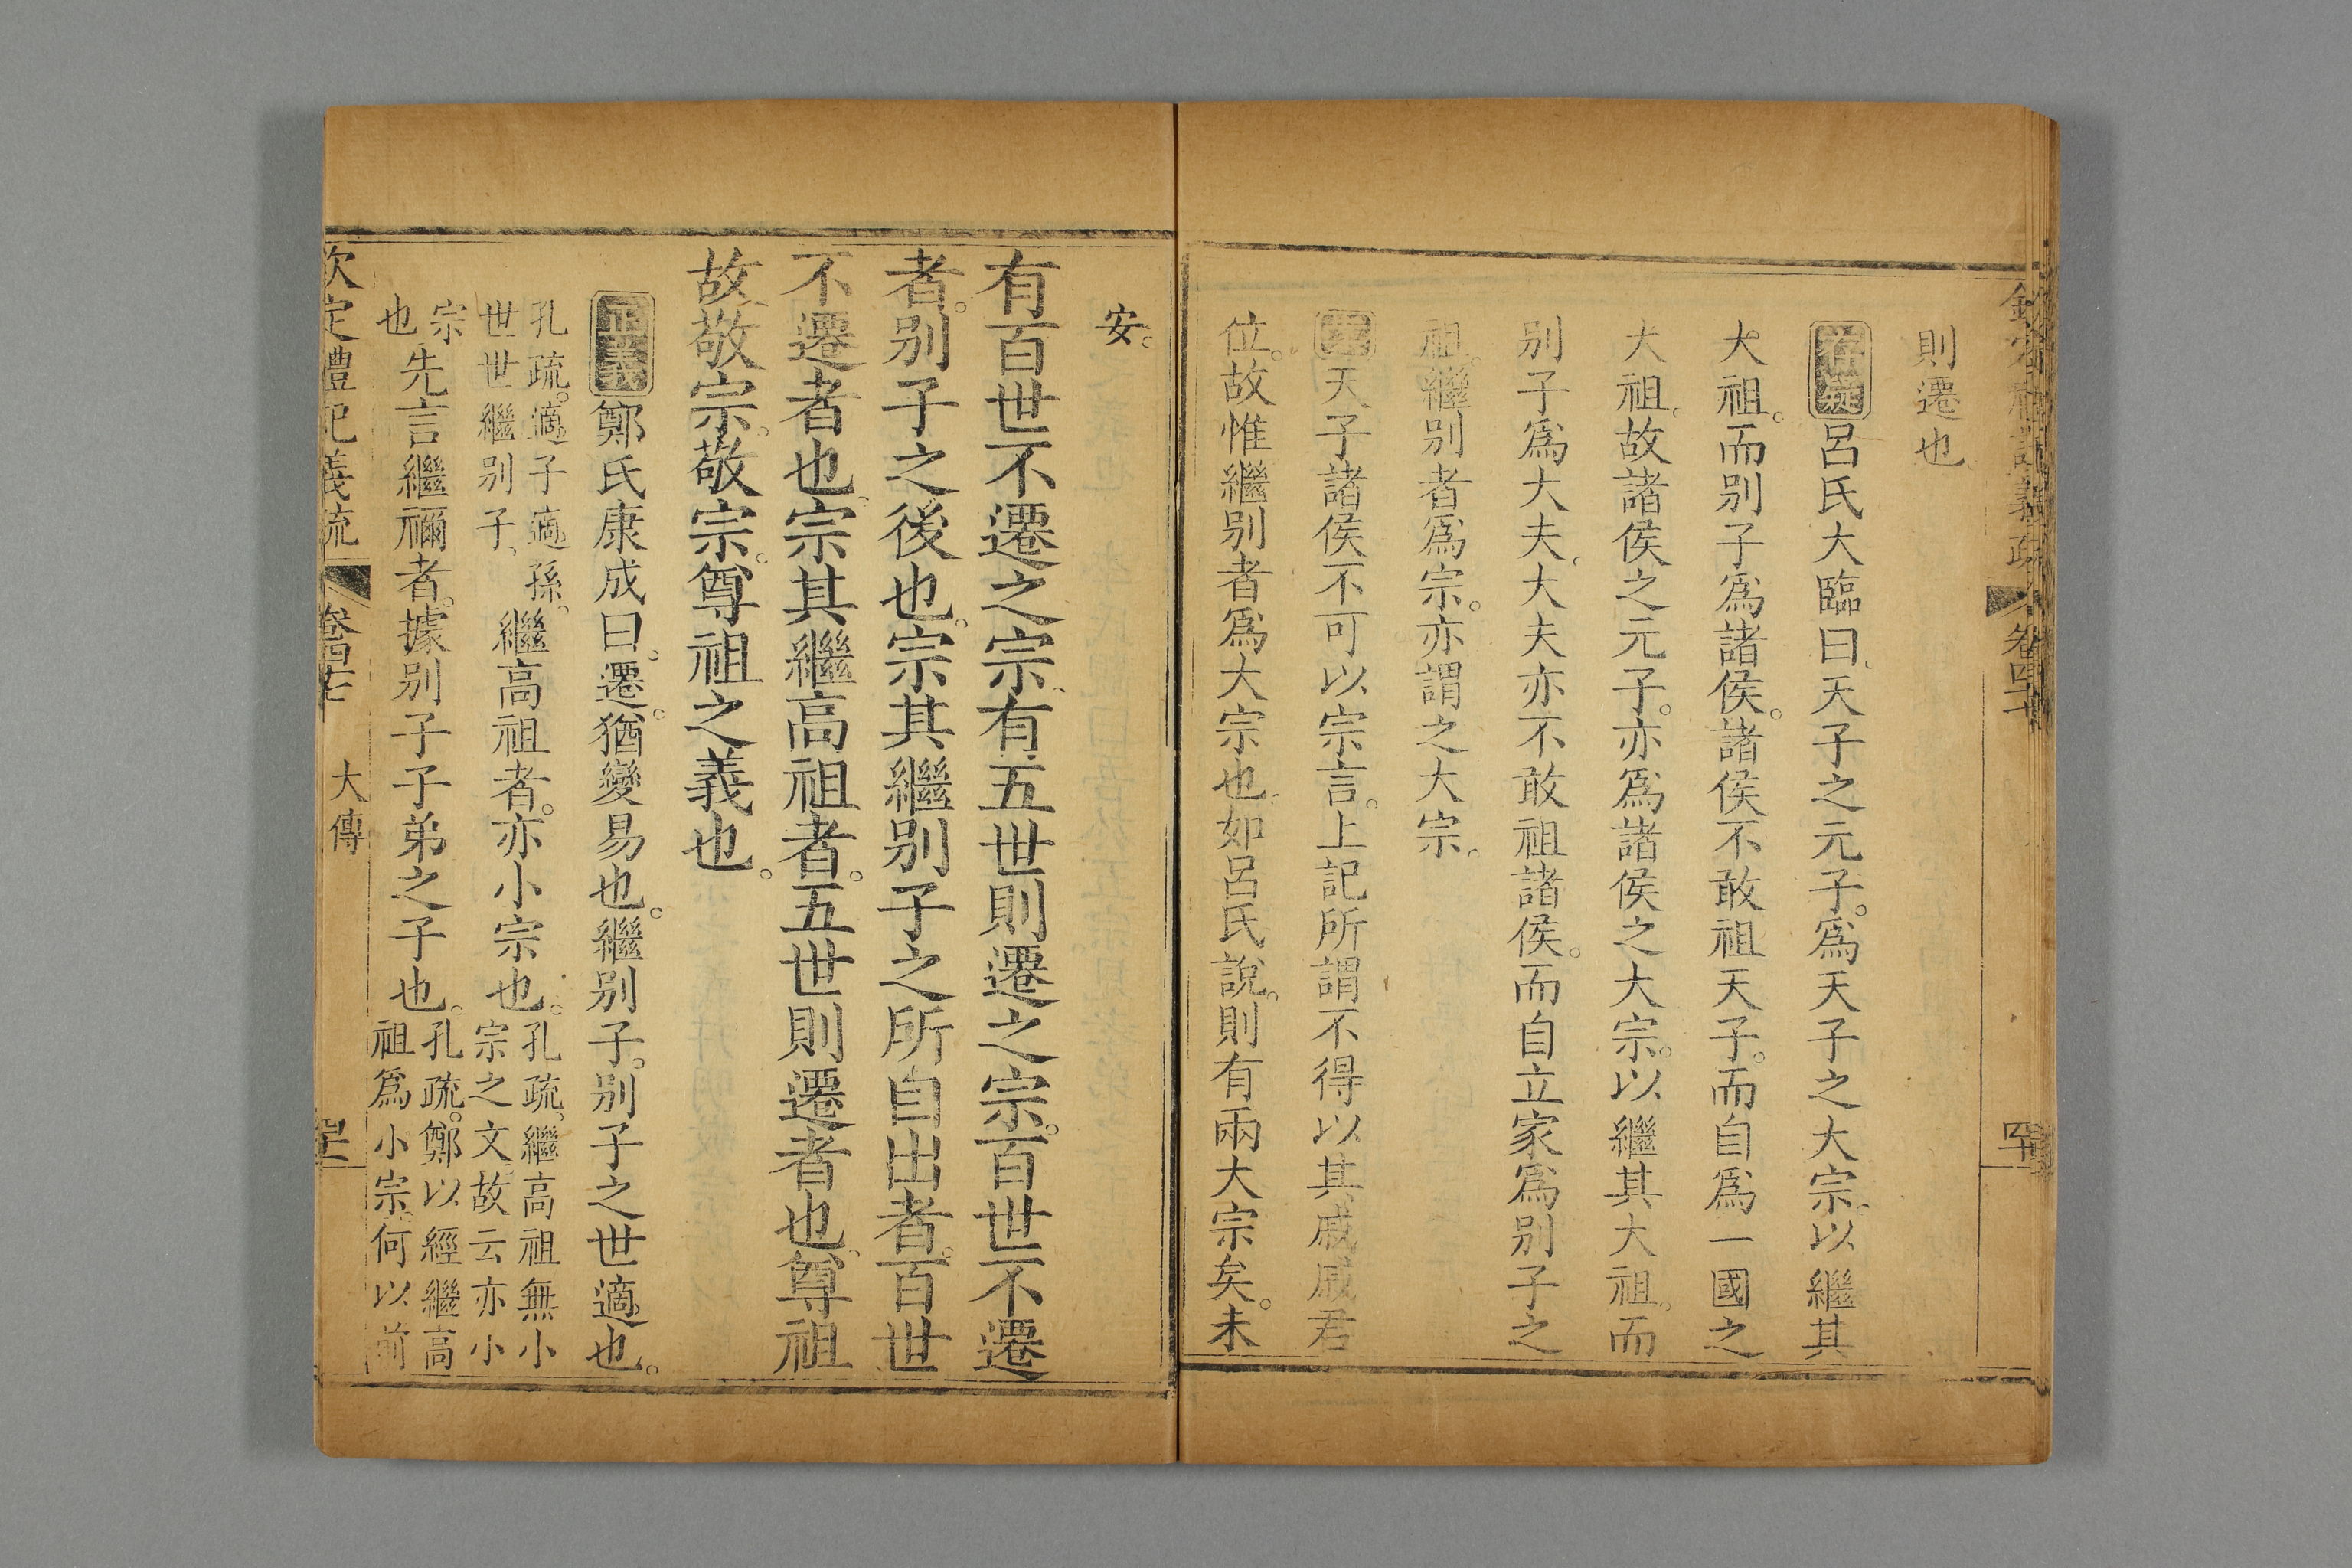 欽定禮記義疏 卷四十七
則遷也
存疑 呂氏大臨曰天子之元子。爲天子之大宗。以繼其
大祖。而別子爲諸侯。諸侯不敢祖天子。而自爲一國之
大祖。故諸侯之元子。亦爲諸侯之大宗。以繼其大祖。而
別子爲大夫。大夫亦不敢祖諸侯。而自立家爲別子之
祖。繼別者爲宗。亦謂之大宗。
案 天子諸侯不可以宗言。上記所謂不得以其戚戚君
位。故惟繼別者爲大宗也。如呂氏說。則有兩大宗矣。未
安。
有百世不遷之宗。有五世則遷之宗。百世不遷
者。別子之後也。宗其繼別子之所自出者。百世
不遷者也。宗其繼高祖者。五世則遷者也。尊祖
故敬宗。敬宗。尊祖之義也。
正義 鄭氏康成曰。遷。猶變易也。繼別子。別子之世適也。
孔疏。適子適孫。
世世繼別子。
繼高祖者。亦小宗也。
孔疏。繼高祖無小
宗之文。故云亦小
宗
也
先言繼禰者。據別子子弟之子也。
孔疏。鄭以經繼高
祖爲小宗。何以前
欽定禮記義疏 卷四十七 大傳